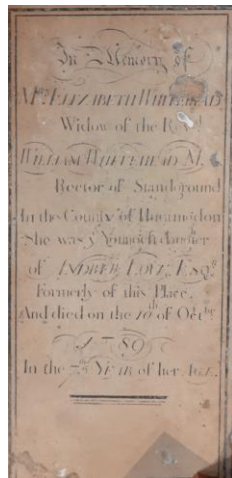 In Memory of
Mrs ELIZABETH WHITEHEAD
Widow of the Revd
WILLIAM WHITEHEAD M
Rector of Standground
In the County of Huntingdon
She was ye Youngest daughter
of ANDREW LOVE, ESQR
Formerly of this Place,
And died on the 19th of Octbr
1789
In the YEAR of her AGE.